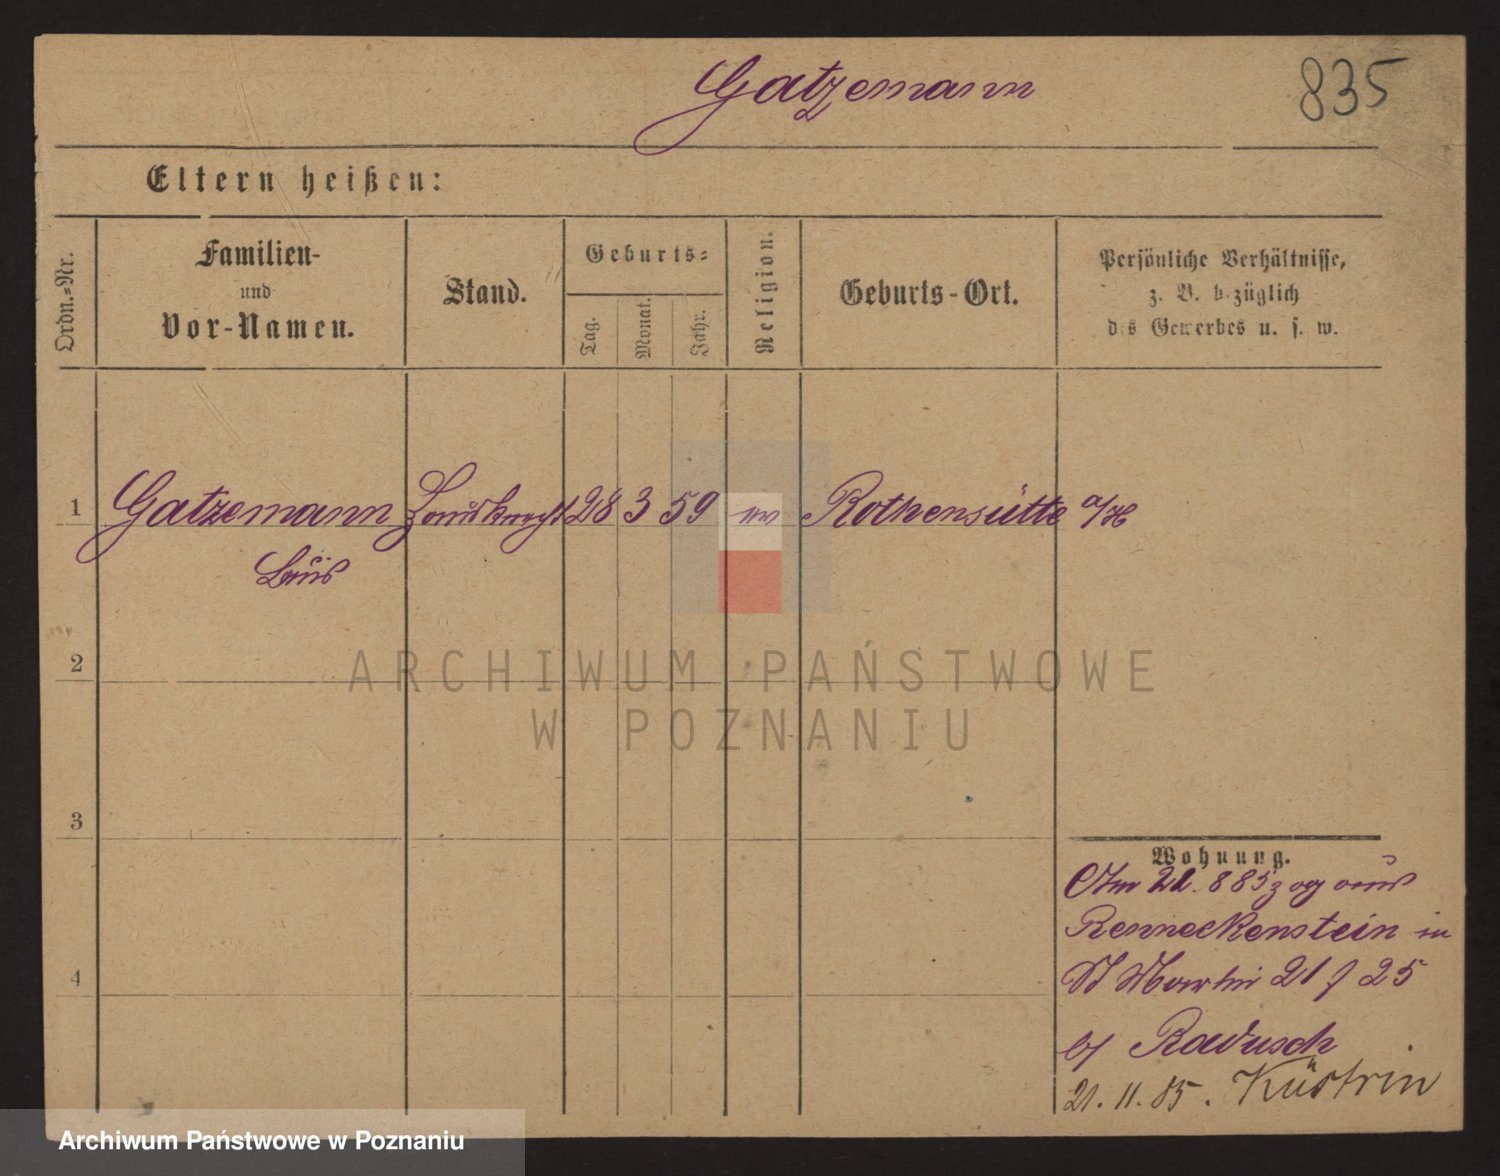 Gatzemann
835
Eltern heißen:
Ordn.=Nr.
Familien-
und
Vor-Namen.
Stand.
Geburts=
Tag.
Monat.
Jahr.
Religion.
Geburts-Ort.
Persönliche Verhältnisse,
z. B. bezüglich
des Gewerbes u. s. w.
1
Gatzemann Hausknecht 28 3 59 Rothensütte a/H
2
ARCHIWUM PAŃSTWOWE
W POZNANIU
3
Wohnung.
Am 21. 8 85 zog aus
Renneckenstein in
St Martin 21 f 25
b/ Radusch
4
21. 11. 85. Küstrin
Archiwum Państwowe w Poznaniu